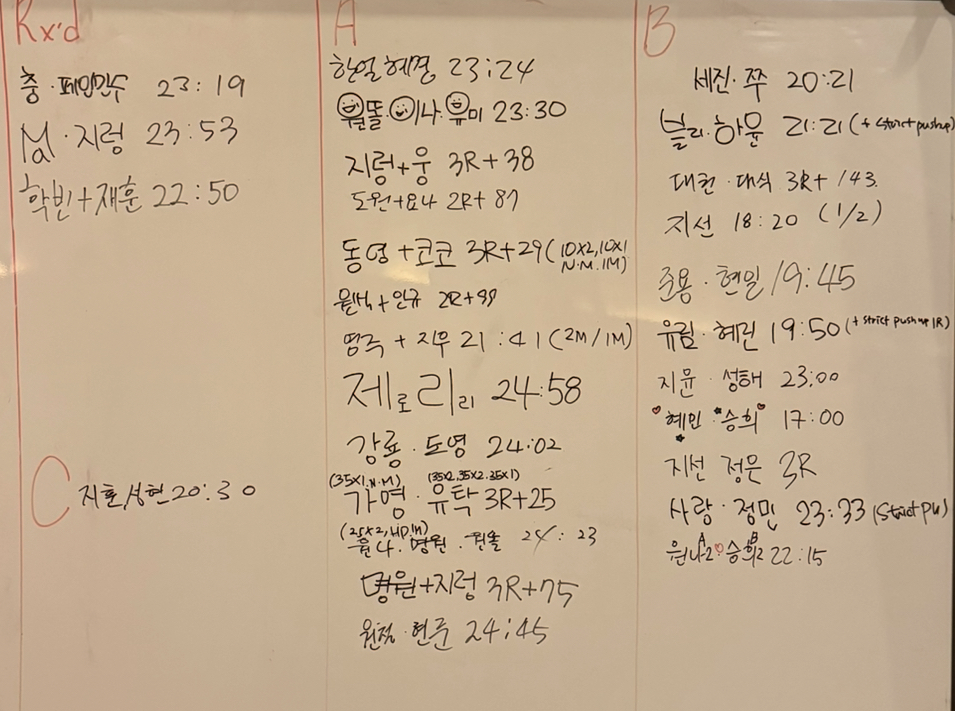 Rx'd
충·페인만수 23:19
Ma·지렁 23:53
학빈+재훈 22:50
C
지훈,성현 20:30
A
한얼혜결 23:24
원똘·이나·유미 23:30
지렁+웅 3R+38
도원+요나 2R+87
동영+코코 3R+29(10X2,10X1
N.M.1M)
원석+인규 2R+99
영주+지우 21:41(2M/1M)
제로리리 24:58
강룡·도영 24:02
(35X1.N.M) (35X2.35X2.35X1)
가영·유탁 3R+25
(25X2,HD.M)
윤나·명원·원솔 24:23
명원+지렁 3R+75
원정·현준 24:45
B
세진·쭈 20:21
블리·하윤 21:21(+strict pushup)
대헌·대식 3R+143.
지선 18:20 (1/2)
준용·현일 19:45
유림·혜린 19:50(+strict pushup 1R)
지윤·성해 23:00
혜민·승희 17:00
지선 정은 3R
사랑·정민 23:33(Strict PU)
원나2 승희2 22:15